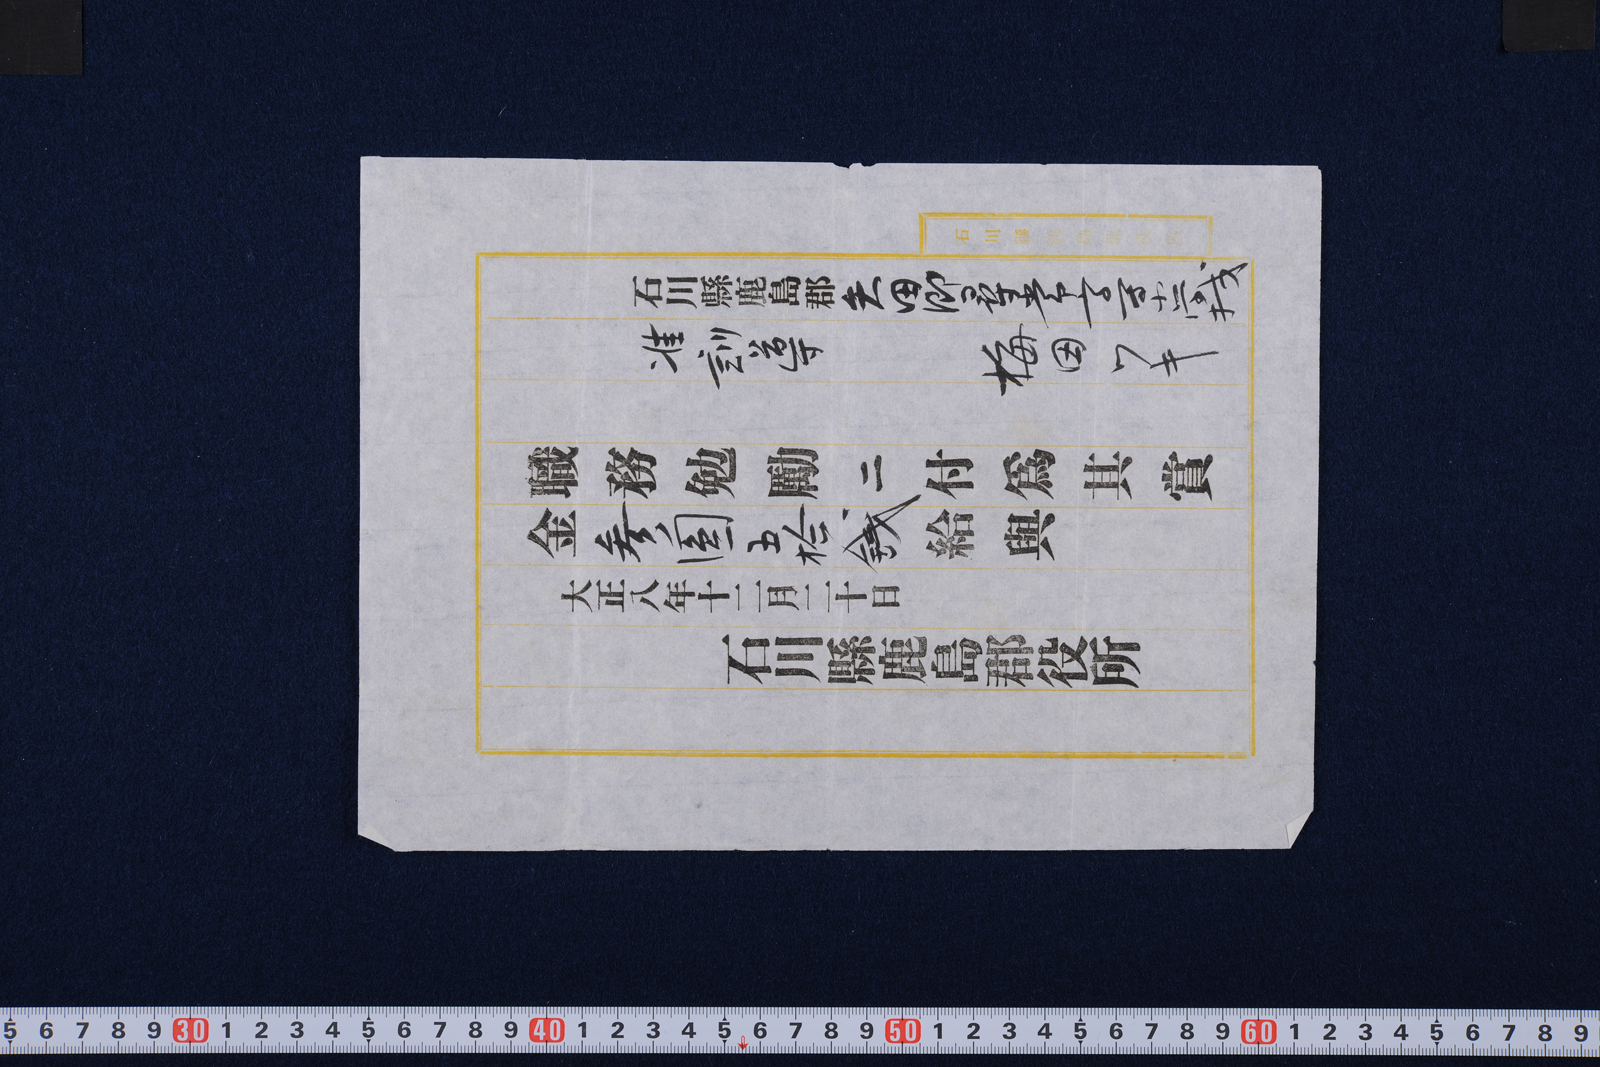 石川縣
石川縣鹿島郡矢田郷尋常高等
准訓導 梅田
職務勉勵ニ付爲其賞
金参圓五拾錢給與
大正八年十二月二十日
石川縣鹿島郡役所
5 6 7 8 9 30 1 2 3 4 5 6 7 8 9 40 1 2 3 4 5 6 7 8 9 50 1 2 3 4 5 6 7 8 9 60 1 2 3 4 5 6 7 8 9